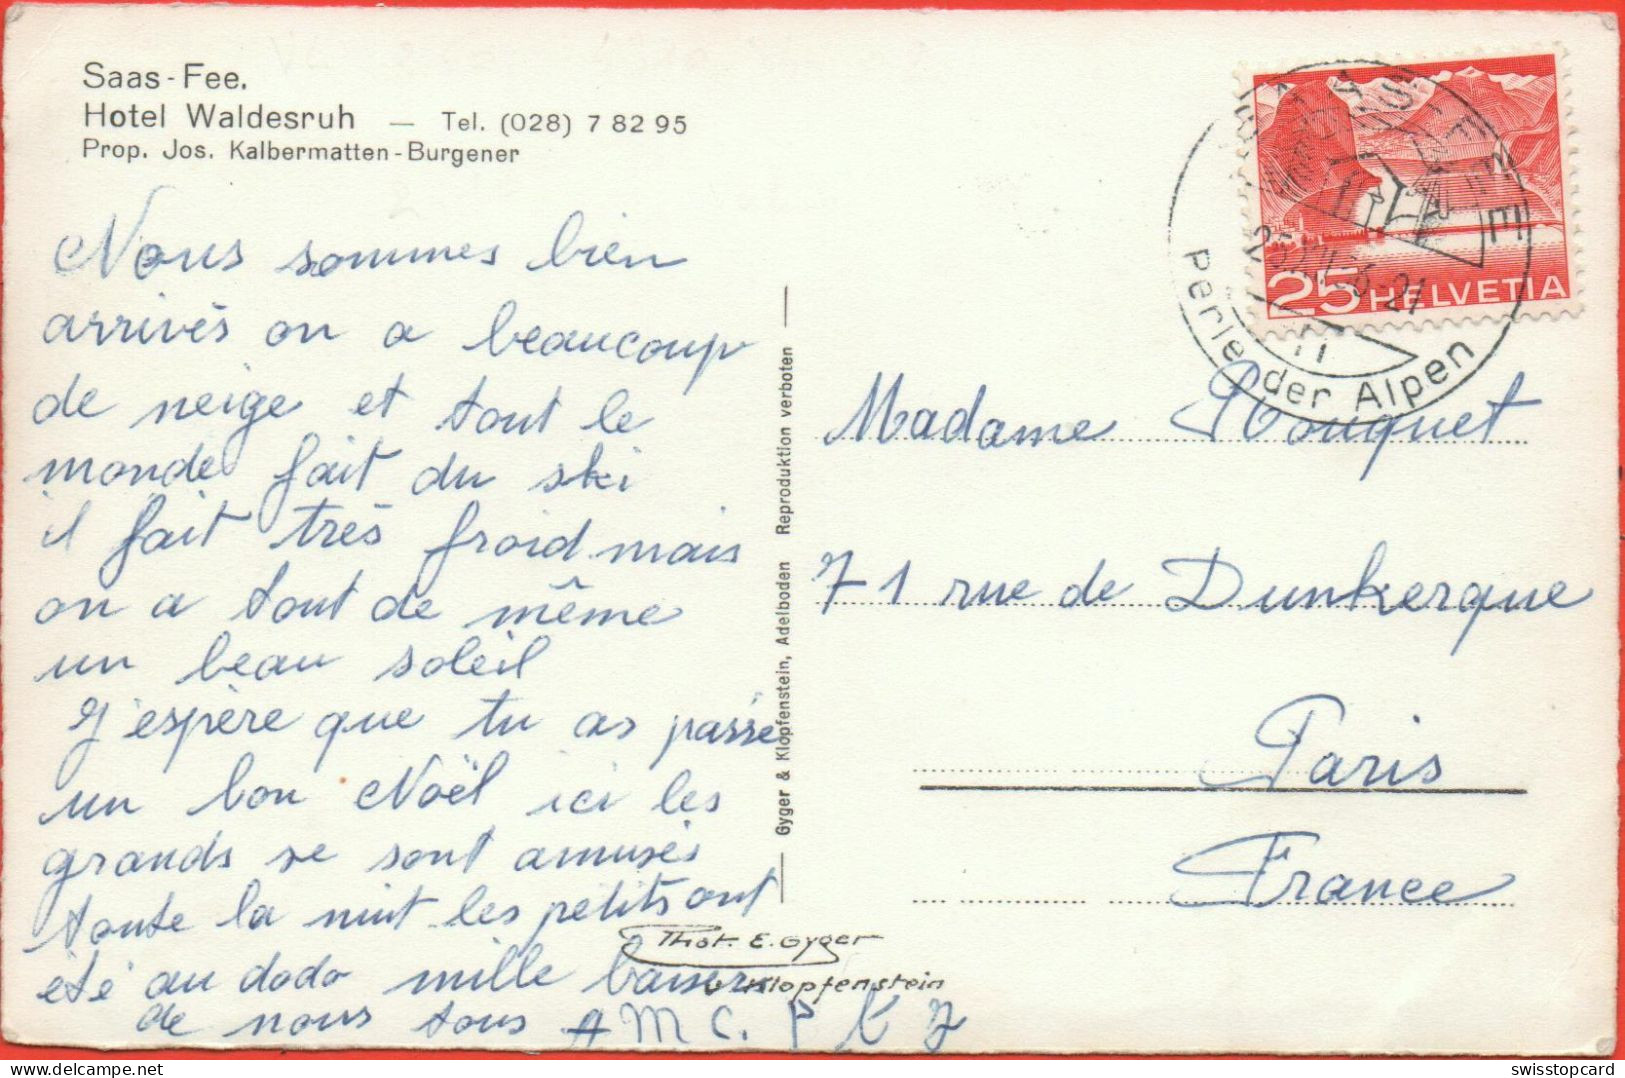 Saas-Fee.
Hotel Waldesruh — Tel. (028) 7 82 95
Prop. Jos. Kalbermatten-Burgener
Nous sommes bien
arrivés on a beaucoup
de neige et tout le
monde fait du ski
il fait très froid mais
on a tout de même
un beau soleil
J'espère que tu as passé
un bon Noël ici les
grands se sont amusés
toute la nuit les petits ont
été au dodo mille baisers
de nous tous A M C. P K J
Gyger & Klopfenstein, Adelboden Reproduktion verboten
Phot. E. Gyger
Klopfenstein
25 HELVETIA
SAAS-FEE
Perle der Alpen
Madame Rouquet
71 rue de Dunkerque
Paris
France
swisstopcard